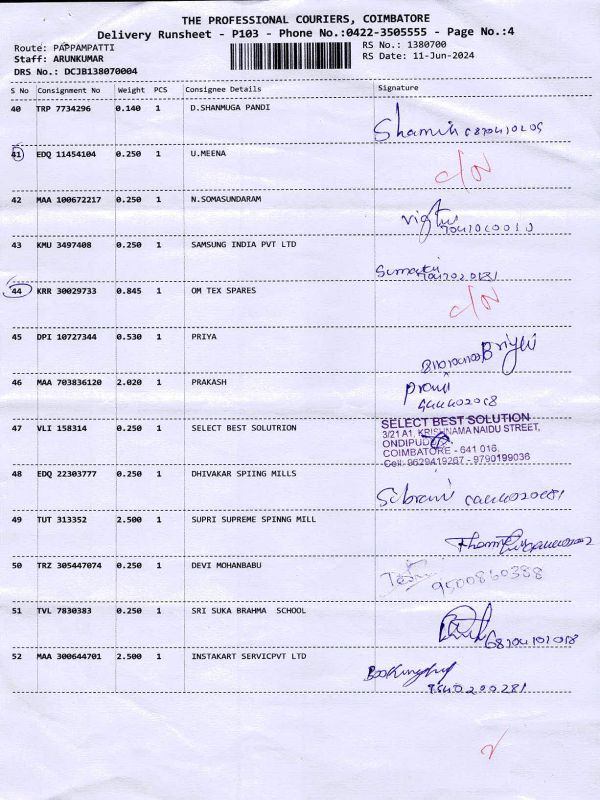 THE PROFESSIONAL COURIERS, COIMBATORE
Delivery Runsheet - P103 - Phone No.:0422-3505555 - Page No.:4
Route: PAPPAMPATTI RS No.: 1380700
Staff: ARUNKUMAR RS Date: 11-Jun-2024
DRS No.: DCJB138070004
S No Consignment No Weight PCS Consignee Details Signature
40 TRP 7734296 0.140 1 D.SHANMUGA PANDI
41 EDQ 11454104 0.250 1 U.MEENA
C/N
42 MAA 100672217 0.250 1 N.SOMASUNDARAM
43 KMU 3497408 0.250 1 SAMSUNG INDIA PVT LTD
44 KRR 30029733 0.845 1 OM TEX SPARES
C/N
45 DPI 10727344 0.530 1 PRIYA
46 MAA 703836120 2.020 1 PRAKASH
47 VLI 158314 0.250 1 SELECT BEST SOLUTRION
SELECT BEST SOLUTION
3/21 A1, KRISHNAMA NAIDU STREET,
ONDIPUDUR
COIMBATORE - 641 016.
Cell: 9629419267 - 9790199036
48 EDQ 22303777 0.250 1 DHIVAKAR SPIING MILLS
49 TUT 313352 2.500 1 SUPRI SUPREME SPINNG MILL
50 TRZ 305447074 0.250 1 DEVI MOHANBABU
9500860388
51 TVL 7830383 0.250 1 SRI SUKA BRAHMA SCHOOL
52 MAA 300644701 2.500 1 INSTAKART SERVICPVT LTD
9540200281